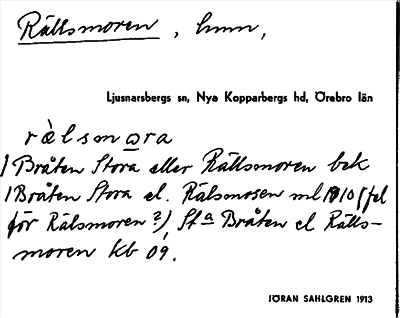 Rällsmoren, hmn,
Ljusnarsbergs sn, Nya Kopparbergs hd, Örebro län
rälsmora
1 Bråten Stora eller Rällsmoren bek
1 Bråten Stora el. Rälsmosen ml 1810 (fel
för Rälsmoren?), Sta Bråten el Rälls-
moren kb 09.
JÖRAN SAHLGREN 1913